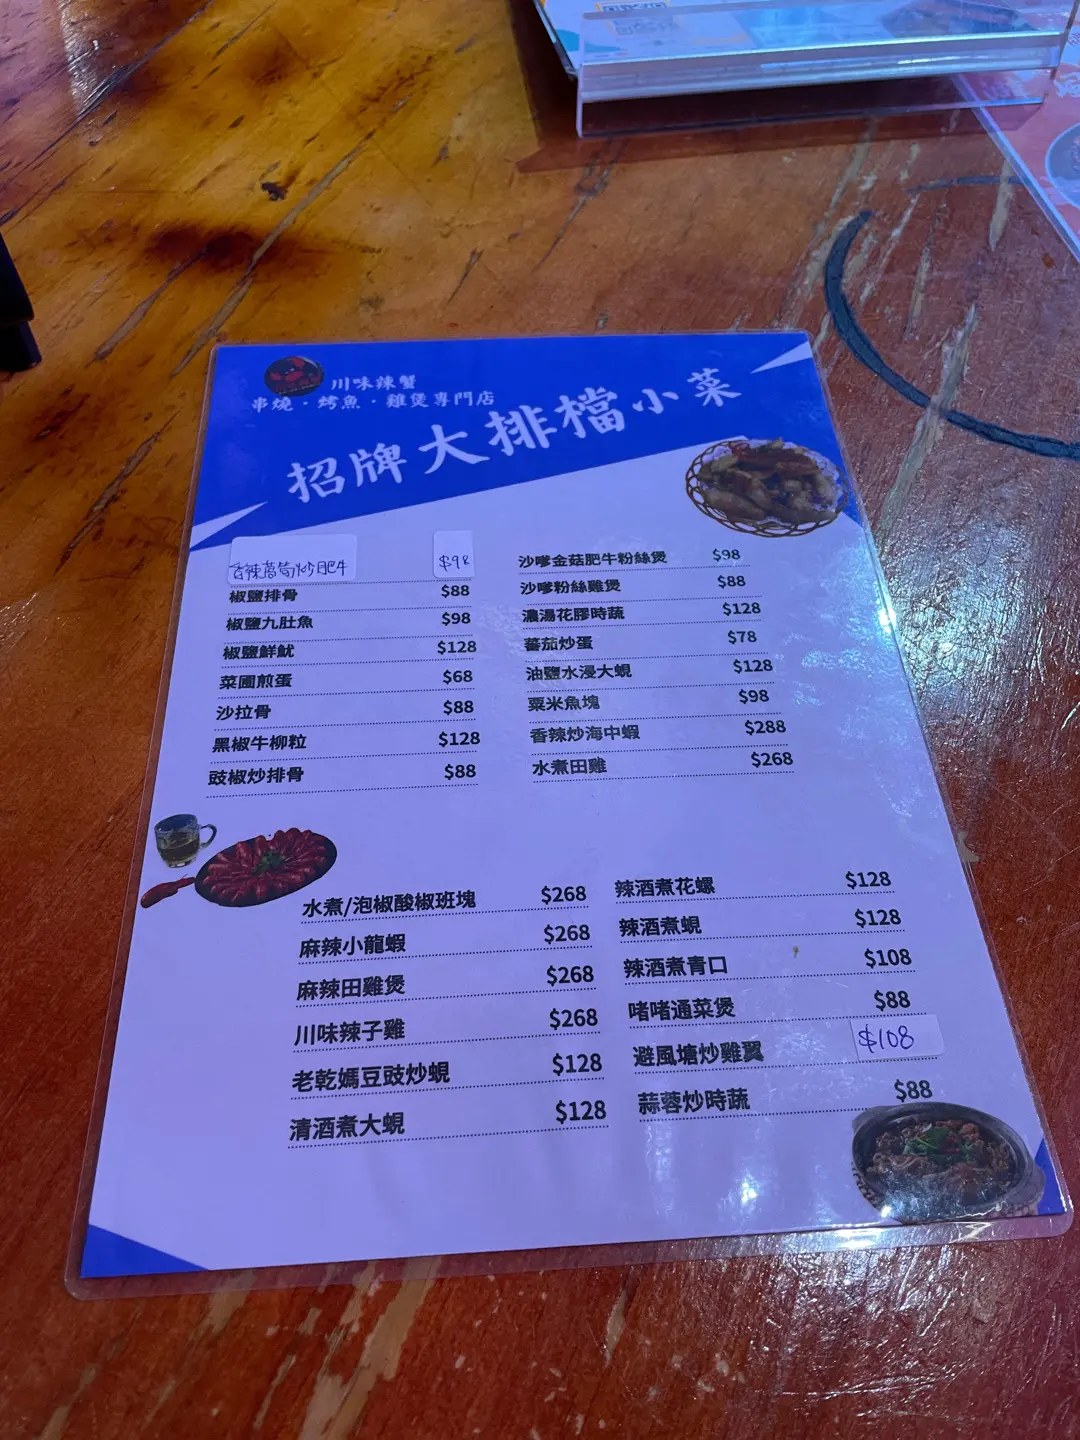 川味辣蟹
串燒·烤魚·雞煲專門店
招牌大排檔小菜
香辣萵筍炒肥牛 $98
椒鹽排骨 $88
椒鹽九肚魚 $98
椒鹽鮮魷 $128
菜圃煎蛋 $68
沙拉骨 $88
黑椒牛柳粒 $128
豉椒炒排骨 $88
沙嗲金菇肥牛粉絲煲 $98
沙嗲粉絲雞煲 $88
濃湯花膠時蔬 $128
蕃茄炒蛋 $78
油鹽水浸大蜆 $128
粟米魚塊 $98
香辣炒海中蝦 $288
水煮田雞 $268
水煮/泡椒酸椒班塊 $268
麻辣小龍蝦 $268
麻辣田雞煲 $268
川味辣子雞 $268
老乾媽豆豉炒蜆 $128
清酒煮大蜆 $128
辣酒煮花螺 $128
辣酒煮蜆 $128
辣酒煮青口 $108
啫啫通菜煲 $88
避風塘炒雞翼 $108
蒜蓉炒時蔬 $88